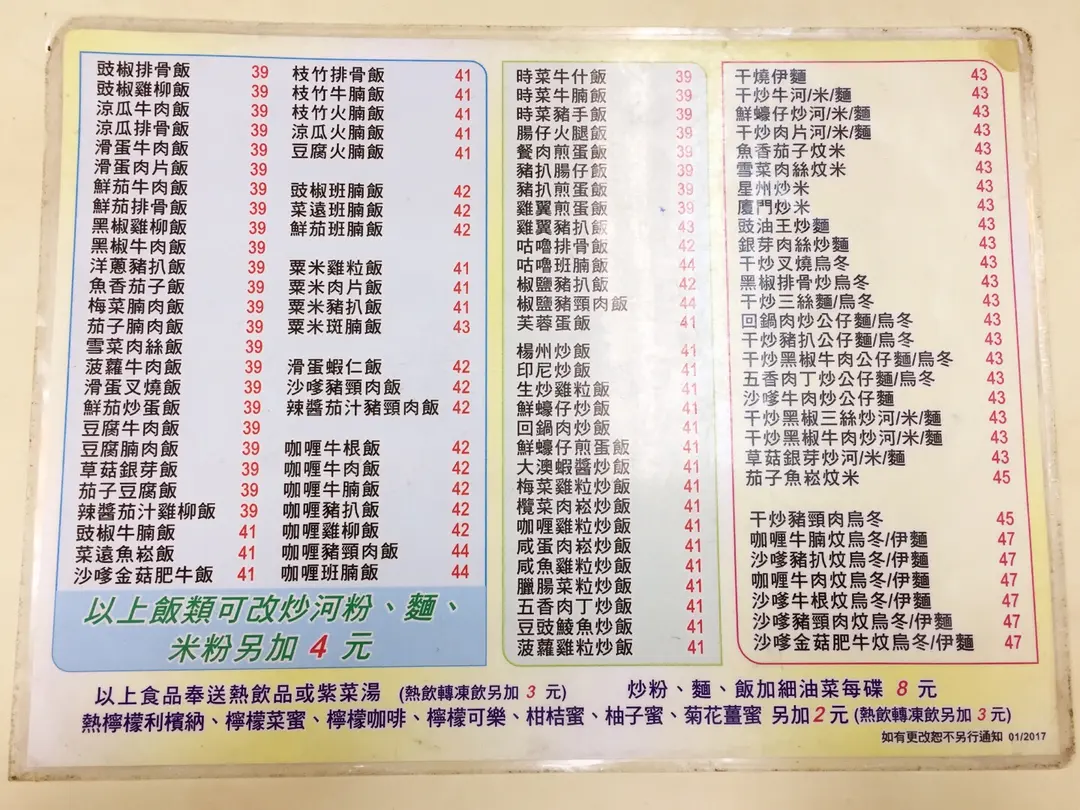 豉椒排骨飯 39
豉椒雞柳飯 39
涼瓜牛肉飯 39
涼瓜排骨飯 39
滑蛋牛肉飯 39
滑蛋肉片飯 39
鮮茄牛肉飯 39
鮮茄排骨飯 39
黑椒雞柳飯 39
黑椒牛肉飯 39
洋蔥豬扒飯 39
魚香茄子飯 39
梅菜腩肉飯 39
茄子腩肉飯 39
雪菜肉絲飯 39
菠蘿牛肉飯 39
滑蛋叉燒飯 39
鮮茄炒蛋飯 39
豆腐牛肉飯 39
豆腐腩肉飯 39
草菇銀芽飯 39
茄子豆腐飯 39
辣醬茄汁雞柳飯 39
豉椒牛腩飯 41
菜遠魚崧飯 41
沙嗲金菇肥牛飯 41
枝竹排骨飯 41
枝竹牛腩飯 41
枝竹火腩飯 41
涼瓜火腩飯 41
豆腐火腩飯 41
豉椒班腩飯 42
菜遠班腩飯 42
鮮茄班腩飯 42
粟米雞粒飯 41
粟米肉片飯 41
粟米豬扒飯 41
粟米班腩飯 43
滑蛋蝦仁飯 42
沙嗲豬頸肉飯 42
辣醬茄汁豬頸肉飯 42
咖喱牛根飯 42
咖喱牛肉飯 42
咖喱牛腩飯 42
咖喱豬扒飯 42
咖喱雞柳飯 42
咖喱豬頸肉飯 44
咖喱班腩飯 44
以上飯類可改炒河粉、麵、
米粉另加 4 元
時菜牛什飯 39
時菜牛腩飯 39
時菜豬手飯 39
腸仔火腿飯 39
餐肉煎蛋飯 39
豬扒腸仔飯 39
豬扒煎蛋飯 39
雞翼煎蛋飯 39
雞翼豬扒飯 43
咕嚕排骨飯 42
咕嚕班腩飯 44
椒鹽豬扒飯 42
椒鹽豬頸肉飯 44
芙蓉蛋飯 41
楊州炒飯 41
印尼炒飯 41
生炒雞粒飯 41
鮮蠔仔炒飯 41
回鍋肉炒飯 41
鮮蠔仔煎蛋飯 41
大澳蝦醬炒飯 41
梅菜雞粒炒飯 41
欖菜肉崧炒飯 41
咖喱雞粒炒飯 41
咸蛋肉崧炒飯 41
咸魚雞粒炒飯 41
臘腸菜粒炒飯 41
五香肉丁炒飯 41
豆豉鯪魚炒飯 41
菠蘿雞粒炒飯 41
干燒伊麵 43
干炒牛河/米/麵 43
鮮蠔仔炒河/米/麵 43
干炒肉片河/米/麵 43
魚香茄子炆米 43
雪菜肉絲炆米 43
星州炒米 43
廈門炒米 43
豉油王炒麵 43
銀芽肉絲炒麵 43
干炒叉燒烏冬 43
黑椒排骨炒烏冬 43
干炒三絲麵/烏冬 43
回鍋肉炒公仔麵/烏冬 43
干炒豬扒公仔麵/烏冬 43
干炒黑椒牛肉公仔麵/烏冬 43
五香肉丁炒公仔麵/烏冬 43
沙嗲牛肉炒公仔麵 43
干炒黑椒三絲炒河/米/麵 43
干炒黑椒牛肉炒河/米/麵 43
草菇銀芽炒河/米/麵 43
茄子魚崧炆米 45
干炒豬頸肉烏冬 45
咖喱牛腩炆烏冬/伊麵 47
沙嗲豬扒炆烏冬/伊麵 47
咖喱牛肉炆烏冬/伊麵 47
沙嗲牛根炆烏冬/伊麵 47
沙嗲豬頸肉炆烏冬/伊麵 47
沙嗲金菇肥牛炆烏冬/伊麵 47
以上食品奉送熱飲品或紫菜湯 (熱飲轉凍飲另加 3 元) 炒粉、麵、飯加細油菜每碟 8 元
熱檸檬利檳納、檸檬菜蜜、檸檬咖啡、檸檬可樂、柑桔蜜、柚子蜜、菊花薑蜜 另加2元 (熱飲轉凍飲另加 3 元)
如有更改恕不另行通知 01/2017